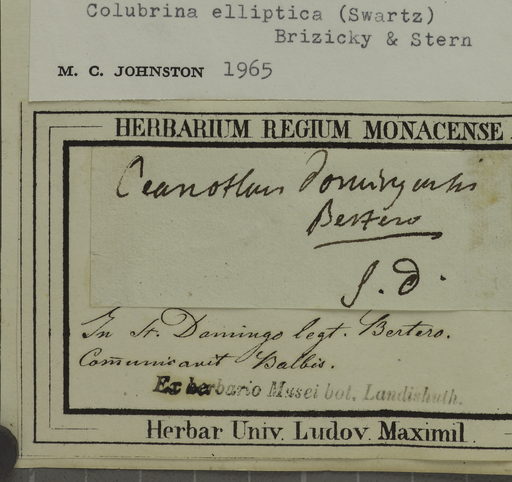 Colubrina elliptica (Swartz)
Brizicky & Stern
M. C. JOHNSTON 1965
HERBARIUM REGIUM MONACENSE
Ceanothus domingensis
Bertero
S. D.
In St. Domingo legt. Bertero.
Communicavit Balbis.
Ex herbario Musei bot. Landishuth.
Herbar Univ. Ludov. Maximil.